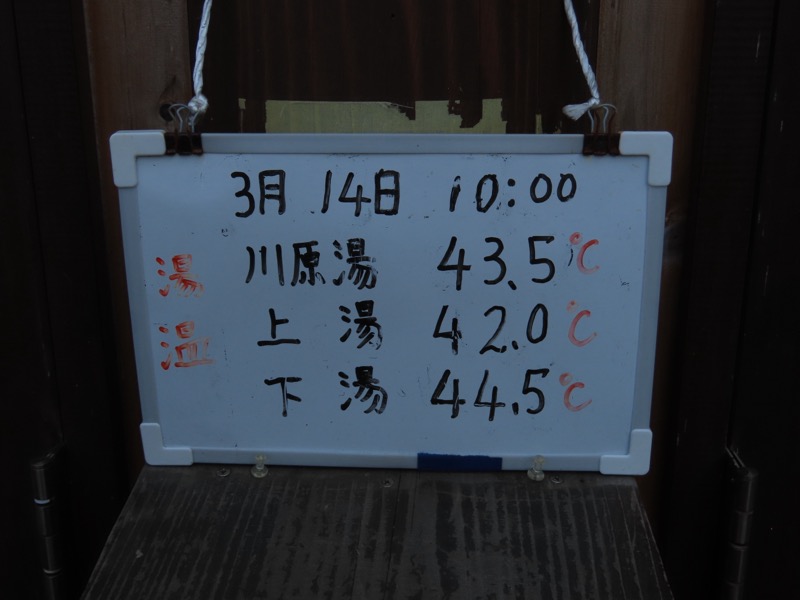 3月 14日 10:00
湯温
川原湯 43.5℃
上湯 42.0℃
下湯 44.5℃